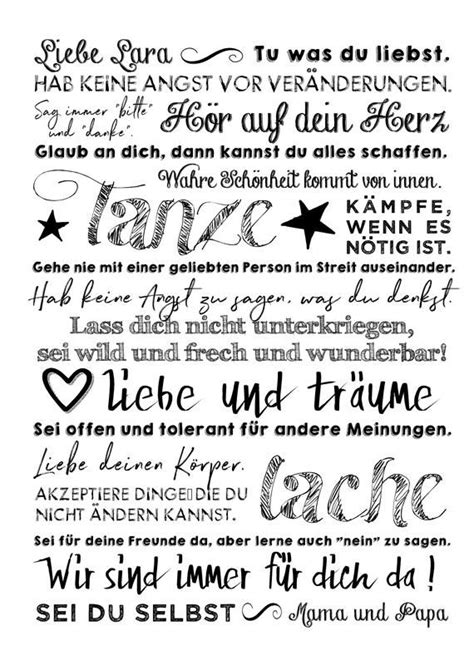 Liebe Lara
Tu was du liebst.
HAB KEINE ANGST VOR VERÄNDERUNGEN.
Sag immer "bitte"
und "danke".
Hör auf dein Herz
Glaub an dich, dann kannst du alles schaffen.
Wahre Schönheit kommt von innen.
Tanze
KÄMPFE,
WENN ES
NÖTIG IST.
Gehe nie mit einer geliebten Person im Streit auseinander.
Hab keine Angst zu sagen, was du denkst.
Lass dich nicht unterkriegen,
sei wild und frech und wunderbar!
liebe und träume
Sei offen und tolerant für andere Meinungen.
Liebe deinen Körper.
AKZEPTIERE DINGE▯DIE DU
NICHT ÄNDERN KANNST.
lache
Sei für deine Freunde da, aber lerne auch "nein" zu sagen.
Wir sind immer für dich da!
SEI DU SELBST
Mama und Papa